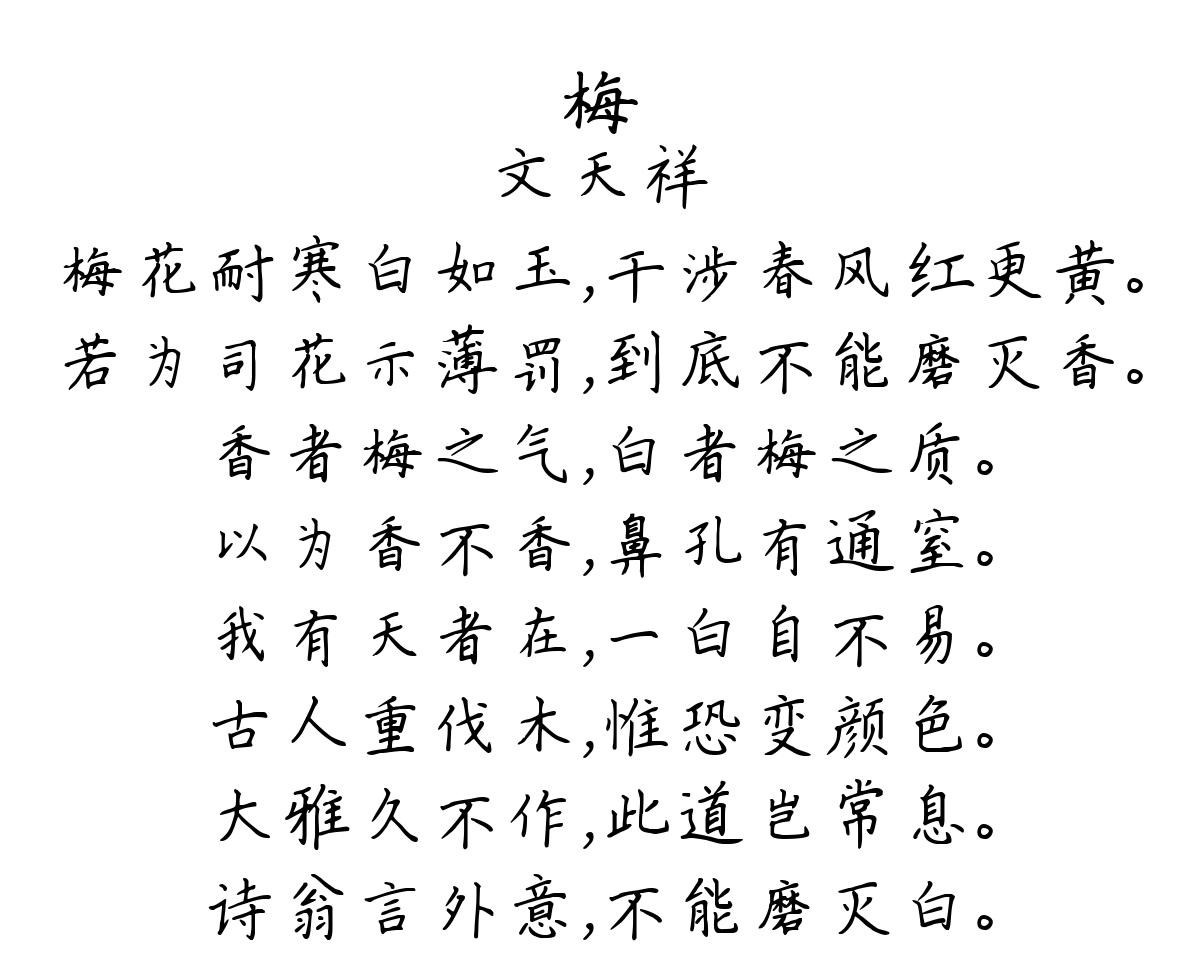 梅
文天祥
梅花耐寒白如玉,干涉春风红更黄。
若为司花示薄罚,到底不能磨灭香。
香者梅之气,白者梅之质。
以为香不香,鼻孔有通窒。
我有天者在,一白自不易。
古人重伐木,惟恐变颜色。
大雅久不作,此道岂常息。
诗翁言外意,不能磨灭白。